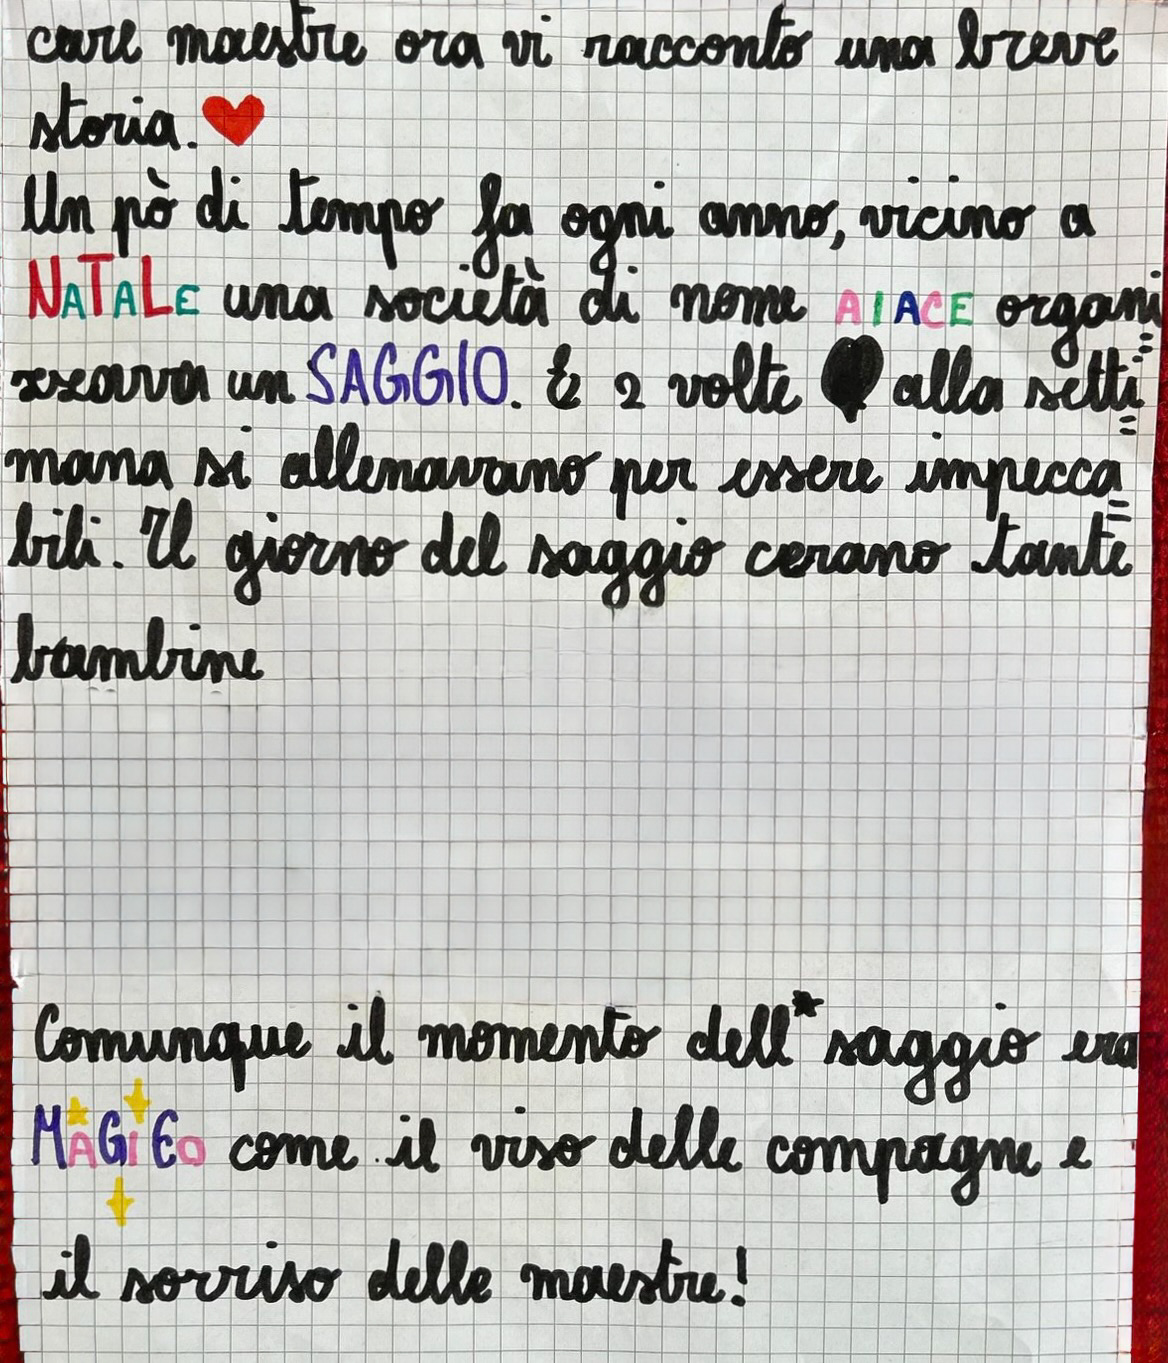 care maestre ora vi racconto una breve
storia.
Un pò di tempo fa ogni anno, vicino a
NATALE una società di nome AIACE organi
zzava un SAGGIO. E 2 volte alla setti
mana si allenavano per essere impecca
bili. Il giorno del saggio cerano tante
bambine
Comunque il momento dell* saggio era
MAGICO come il viso delle compagne e
il sorriso delle maestre!